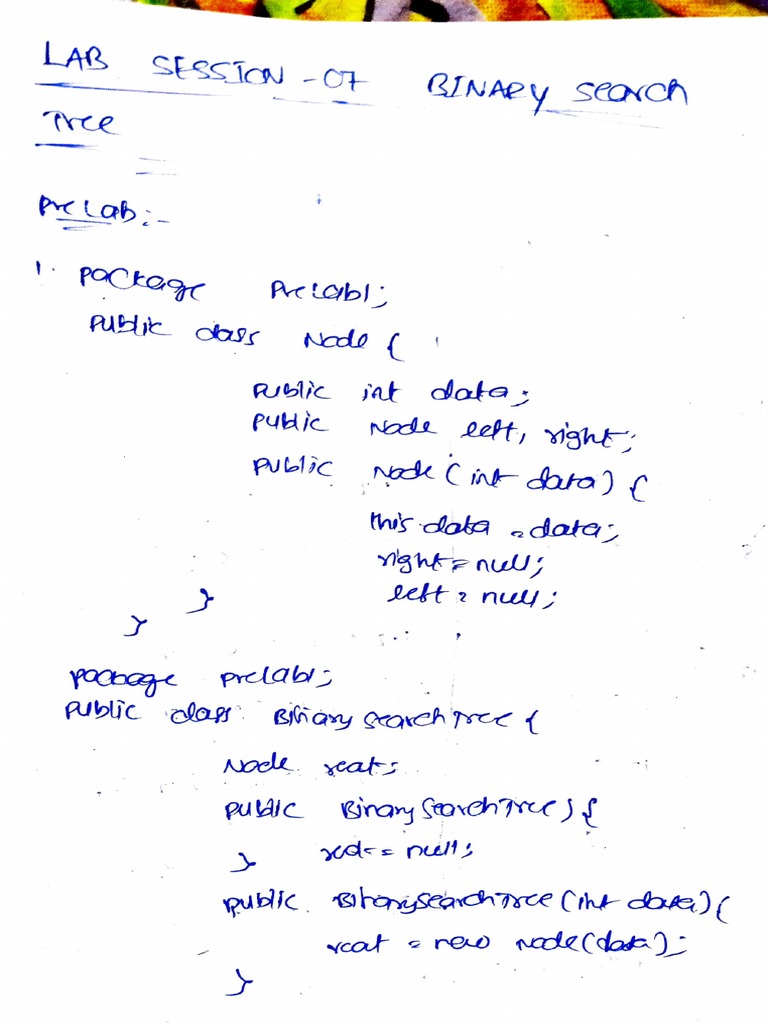 LAB SESSION -07 BINARY Search
Tree
PreLab:-
1. package PreLab1;
public class Node {
public int data;
public Node left, right;
public Node (int data) {
this.data = data;
right = null;
left = null;
}
}
package prelab1;
public class BinarySearchTree {
Node root;
public BinarySearchTree) {
root = null;
}
public BinarySearchTree(int data) {
root = new Node(data);
}